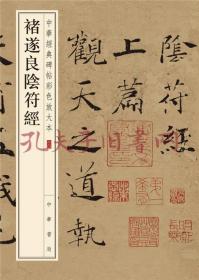 中華經典碑帖彩色放大本
褚遂良陰符經
中華書局
陰符經
上篇
觀天之道執
孔夫子旧书网